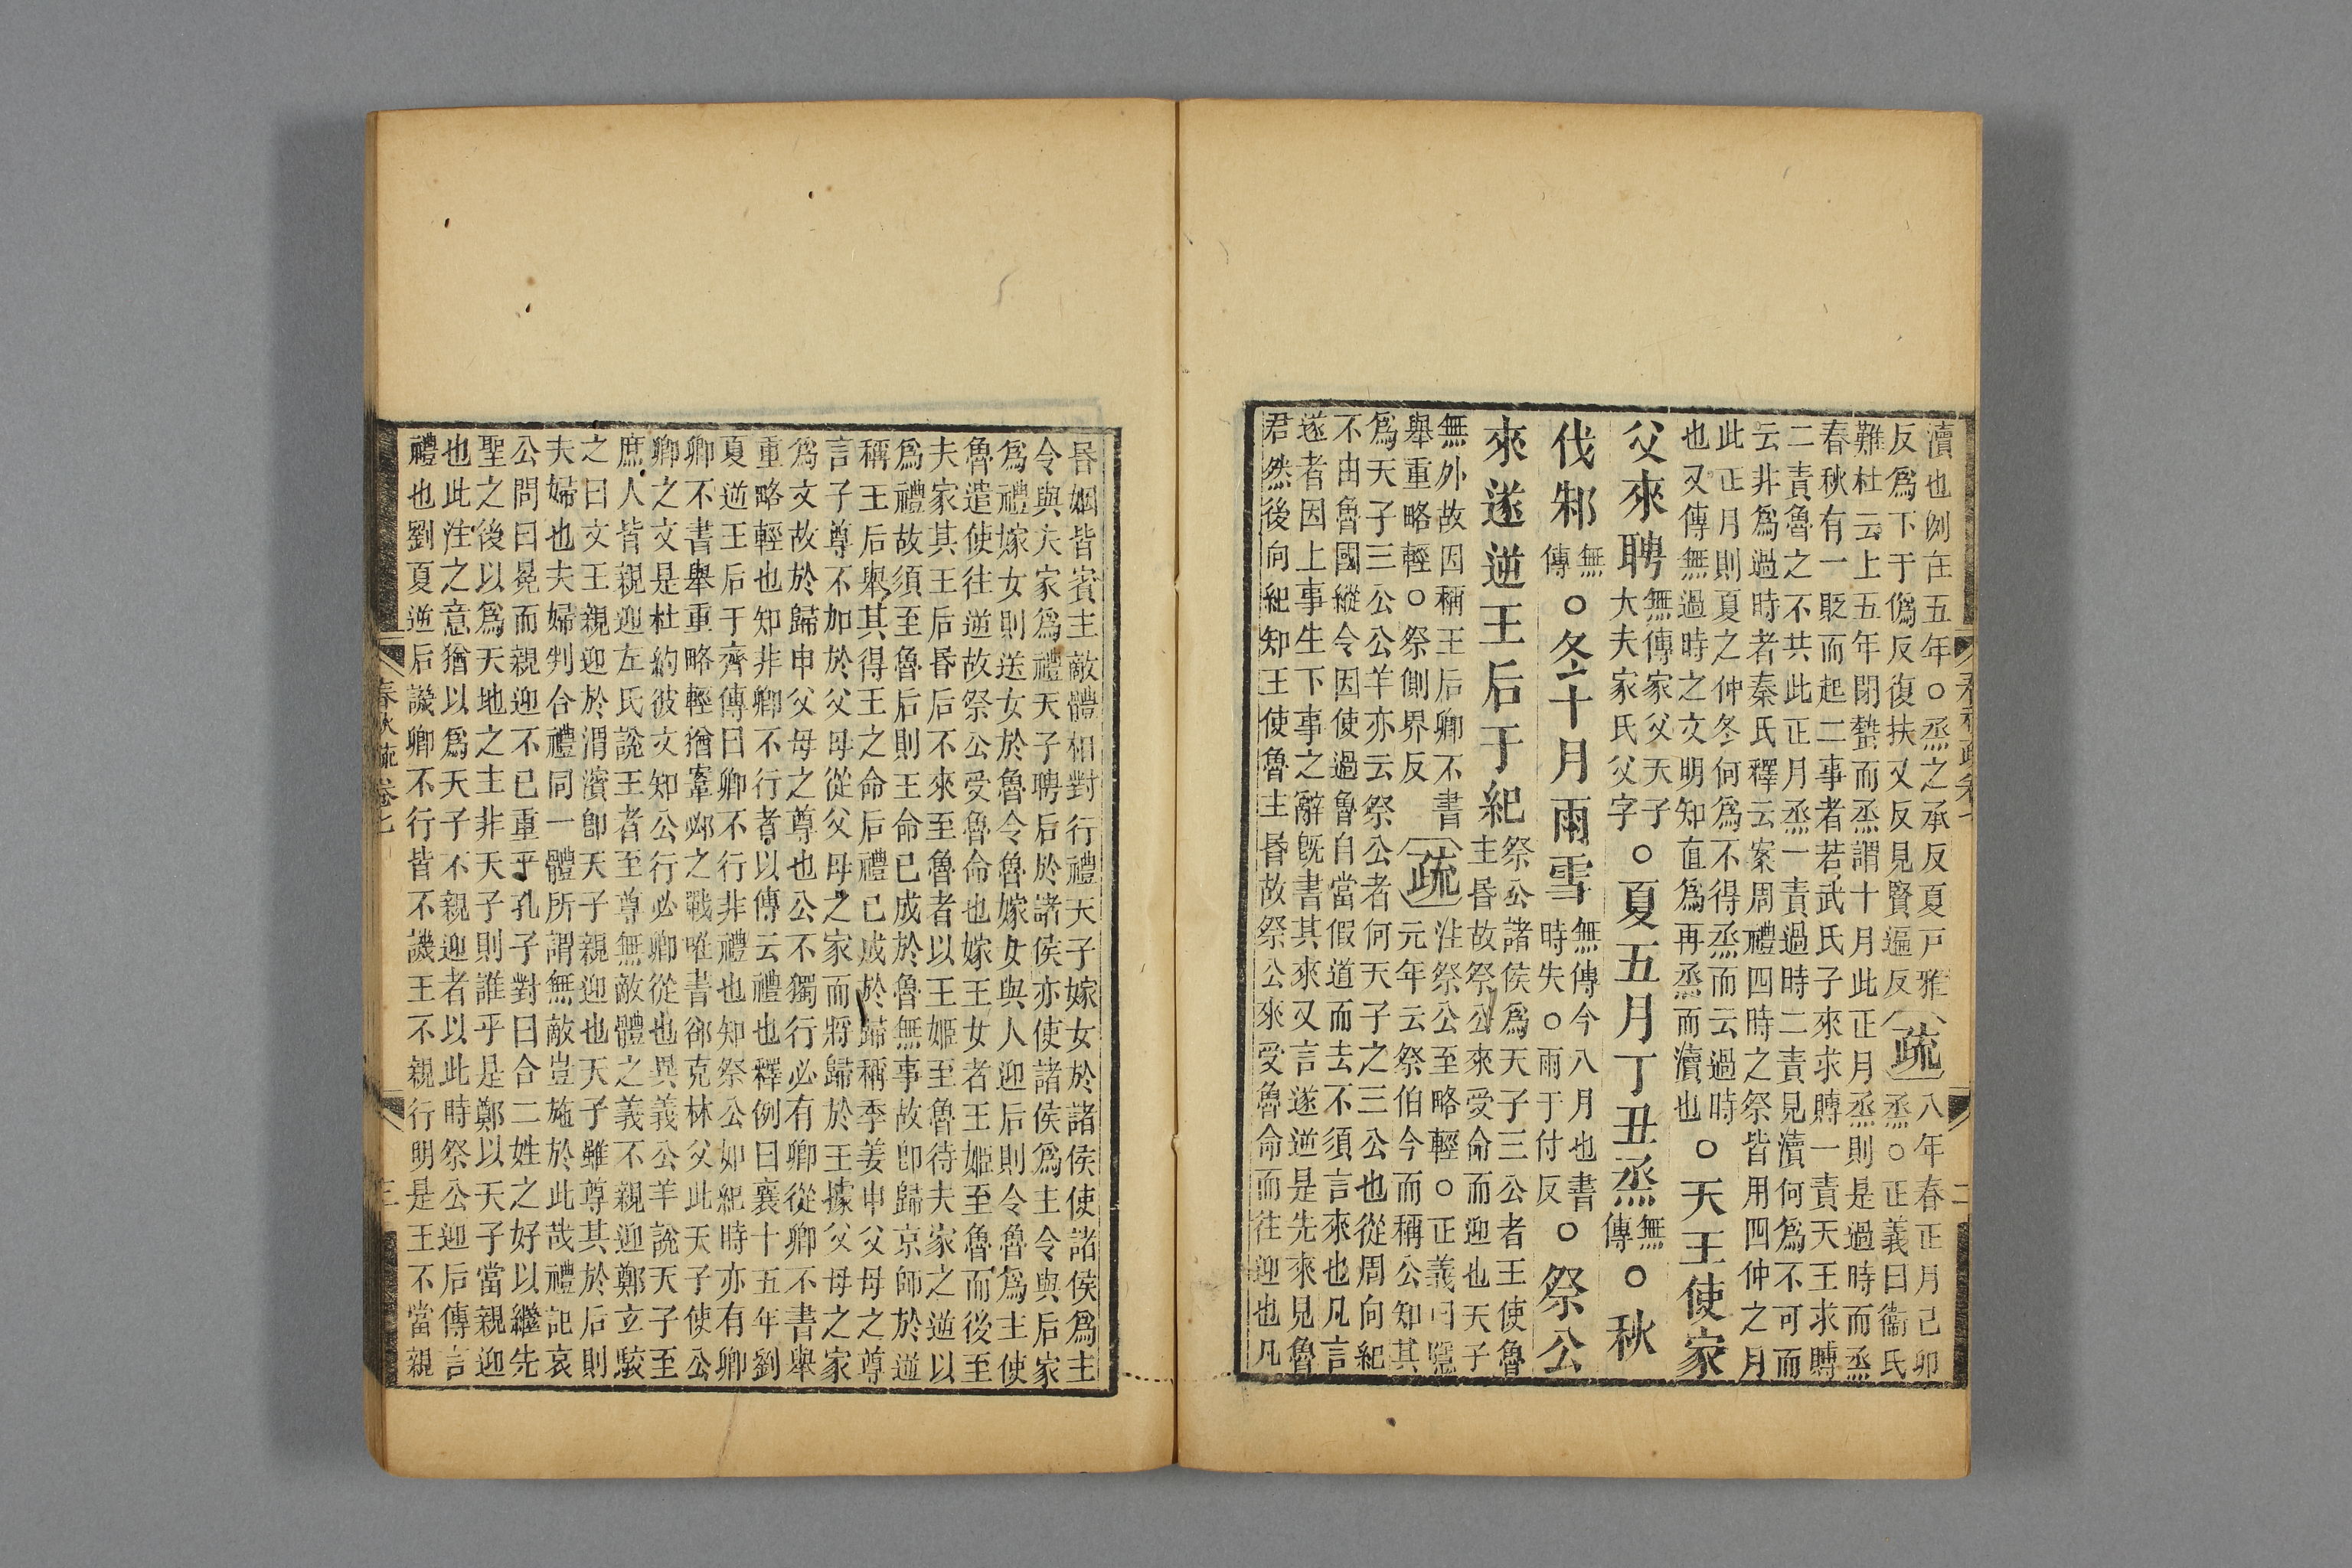 瀆也例在五年○烝之承反夏戸雅
反爲下于僞反復扶又反見賢遍反
疏
八年春正月己卯
烝○正義曰衞氏
難杜云上五年閉蟄而烝謂十月此正月烝則是過時而烝
春秋有一貶而起二事者若武氏子來求賻一責天王求賻
二責魯之不共此正月烝一責過時二責見瀆何爲不可而
云非爲過時者秦氏釋云案周禮四時之祭皆用四仲之月
此正月則夏之仲冬何爲不得烝而云過時
也又傳無過時之文明知直爲再烝而瀆也
○天王使家
父來聘
無傳家父天子
大夫家氏父字
○夏五月丁丑烝
無
傳
○秋
伐邾
無
傳
○冬十月雨雪
無傳今八月也書
時失○雨于付反
○祭公
來遂逆王后于紀
祭公諸侯爲天子三公者王使魯
主昏故祭公來受命而迎也天子
無外故因稱王后卿不書
舉重略輕○祭側界反
疏
注祭公至略輕○正義曰隱
元年云祭伯今而稱公知其
爲天子三公公羊亦云祭公者何天子之三公也從周向紀
不由魯國縱令因使過魯自當假道而去不須言來也凡言
遂者因上事生下事之辭既書其來又言遂逆是先來見魯
君然後向紀知王使魯主昏故祭公來受魯命而往迎也凡
昏姻皆賓主敵體相對行禮天子嫁女於諸侯使諸侯爲主
令與夫家爲禮天子聘后於諸侯亦使諸侯爲主令與后家
爲禮嫁女則送女於魯令魯嫁女與人迎后則令魯爲主使
魯遣使往逆故祭公受魯命也嫁王女者王姬至魯而後至
夫家其王后昏后不來至魯者以王姬至魯待夫家之逆以
爲禮故須至魯后則王命已成於魯無事故卽歸京師於逆
稱王后舉其得王之命后禮已成於歸稱季姜申父母之尊
言子尊不加於父母從父母之家而將歸於王據父母之家
爲文故於歸申父母之尊也公不獨行必有卿從卿不書舉
重略輕也知非卿不行者以傳云禮也釋例曰襄十五年劉
夏逆王后于齊傳曰卿不行非禮也知祭公如紀時亦有卿
卿不書舉重略輕猶鞌邲之戰唯書郤克林父此天子使公
卿之文是杜約彼文知公行必卿從也異義公羊說天子至
庶人皆親迎左氏說王者至尊無敵體之義不親迎鄭立駮
之曰文王親迎於渭濱卽天子親迎也天子雖尊其於后則
夫婦也夫婦判合禮同一體所謂無敵豈施於此哉禮記哀
公問曰冕而親迎不已重乎孔子對曰合二姓之好以繼先
聖之後以爲天地之主非天子則誰乎是鄭以天子當親迎
也此注之意猶以爲天子不親迎者以此時祭公迎后傳言
禮也劉夏逆后譏卿不行皆不譏王不親行明是王不當親
春秋疏卷七
三